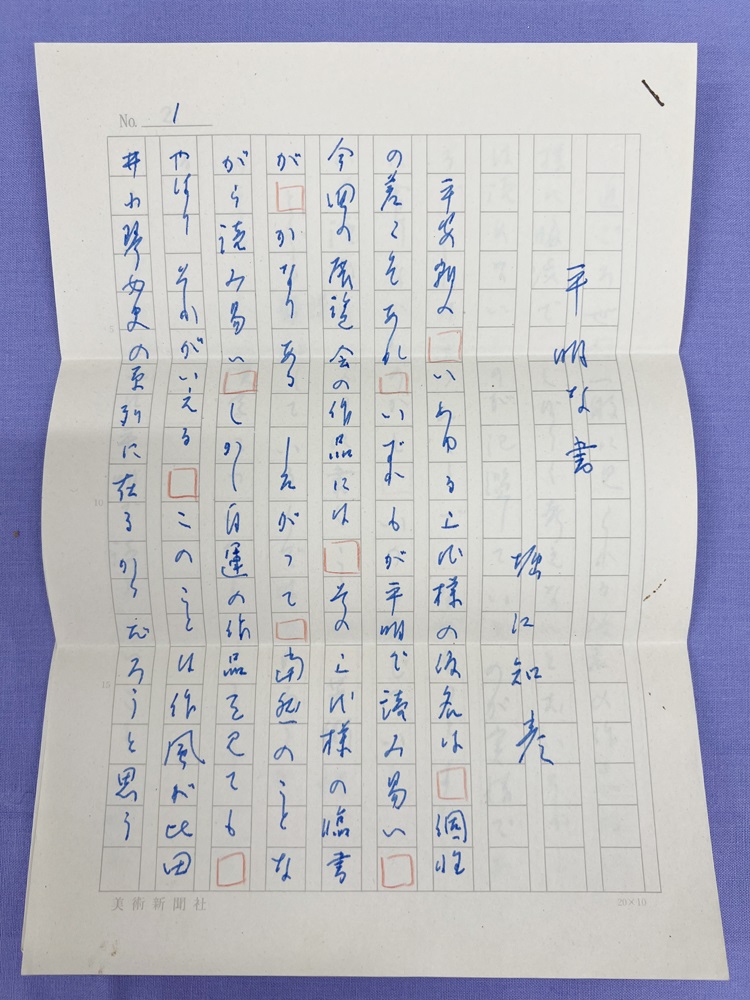 No. 1
平明な書
堀江知彦
平安朝の いわゆる上代様の仮名は 個性
の差こそあれ いずれもが平明で読み易い
今回の展覧会の作品には その上代様の臨書
が かなりある したがって 当然のことな
がら読み易い しかし自運の作品を見ても
やはり それがいえる このことは作風が比田
井小琴女史の系列に在るからだろうと思う
美術新聞社
20×10